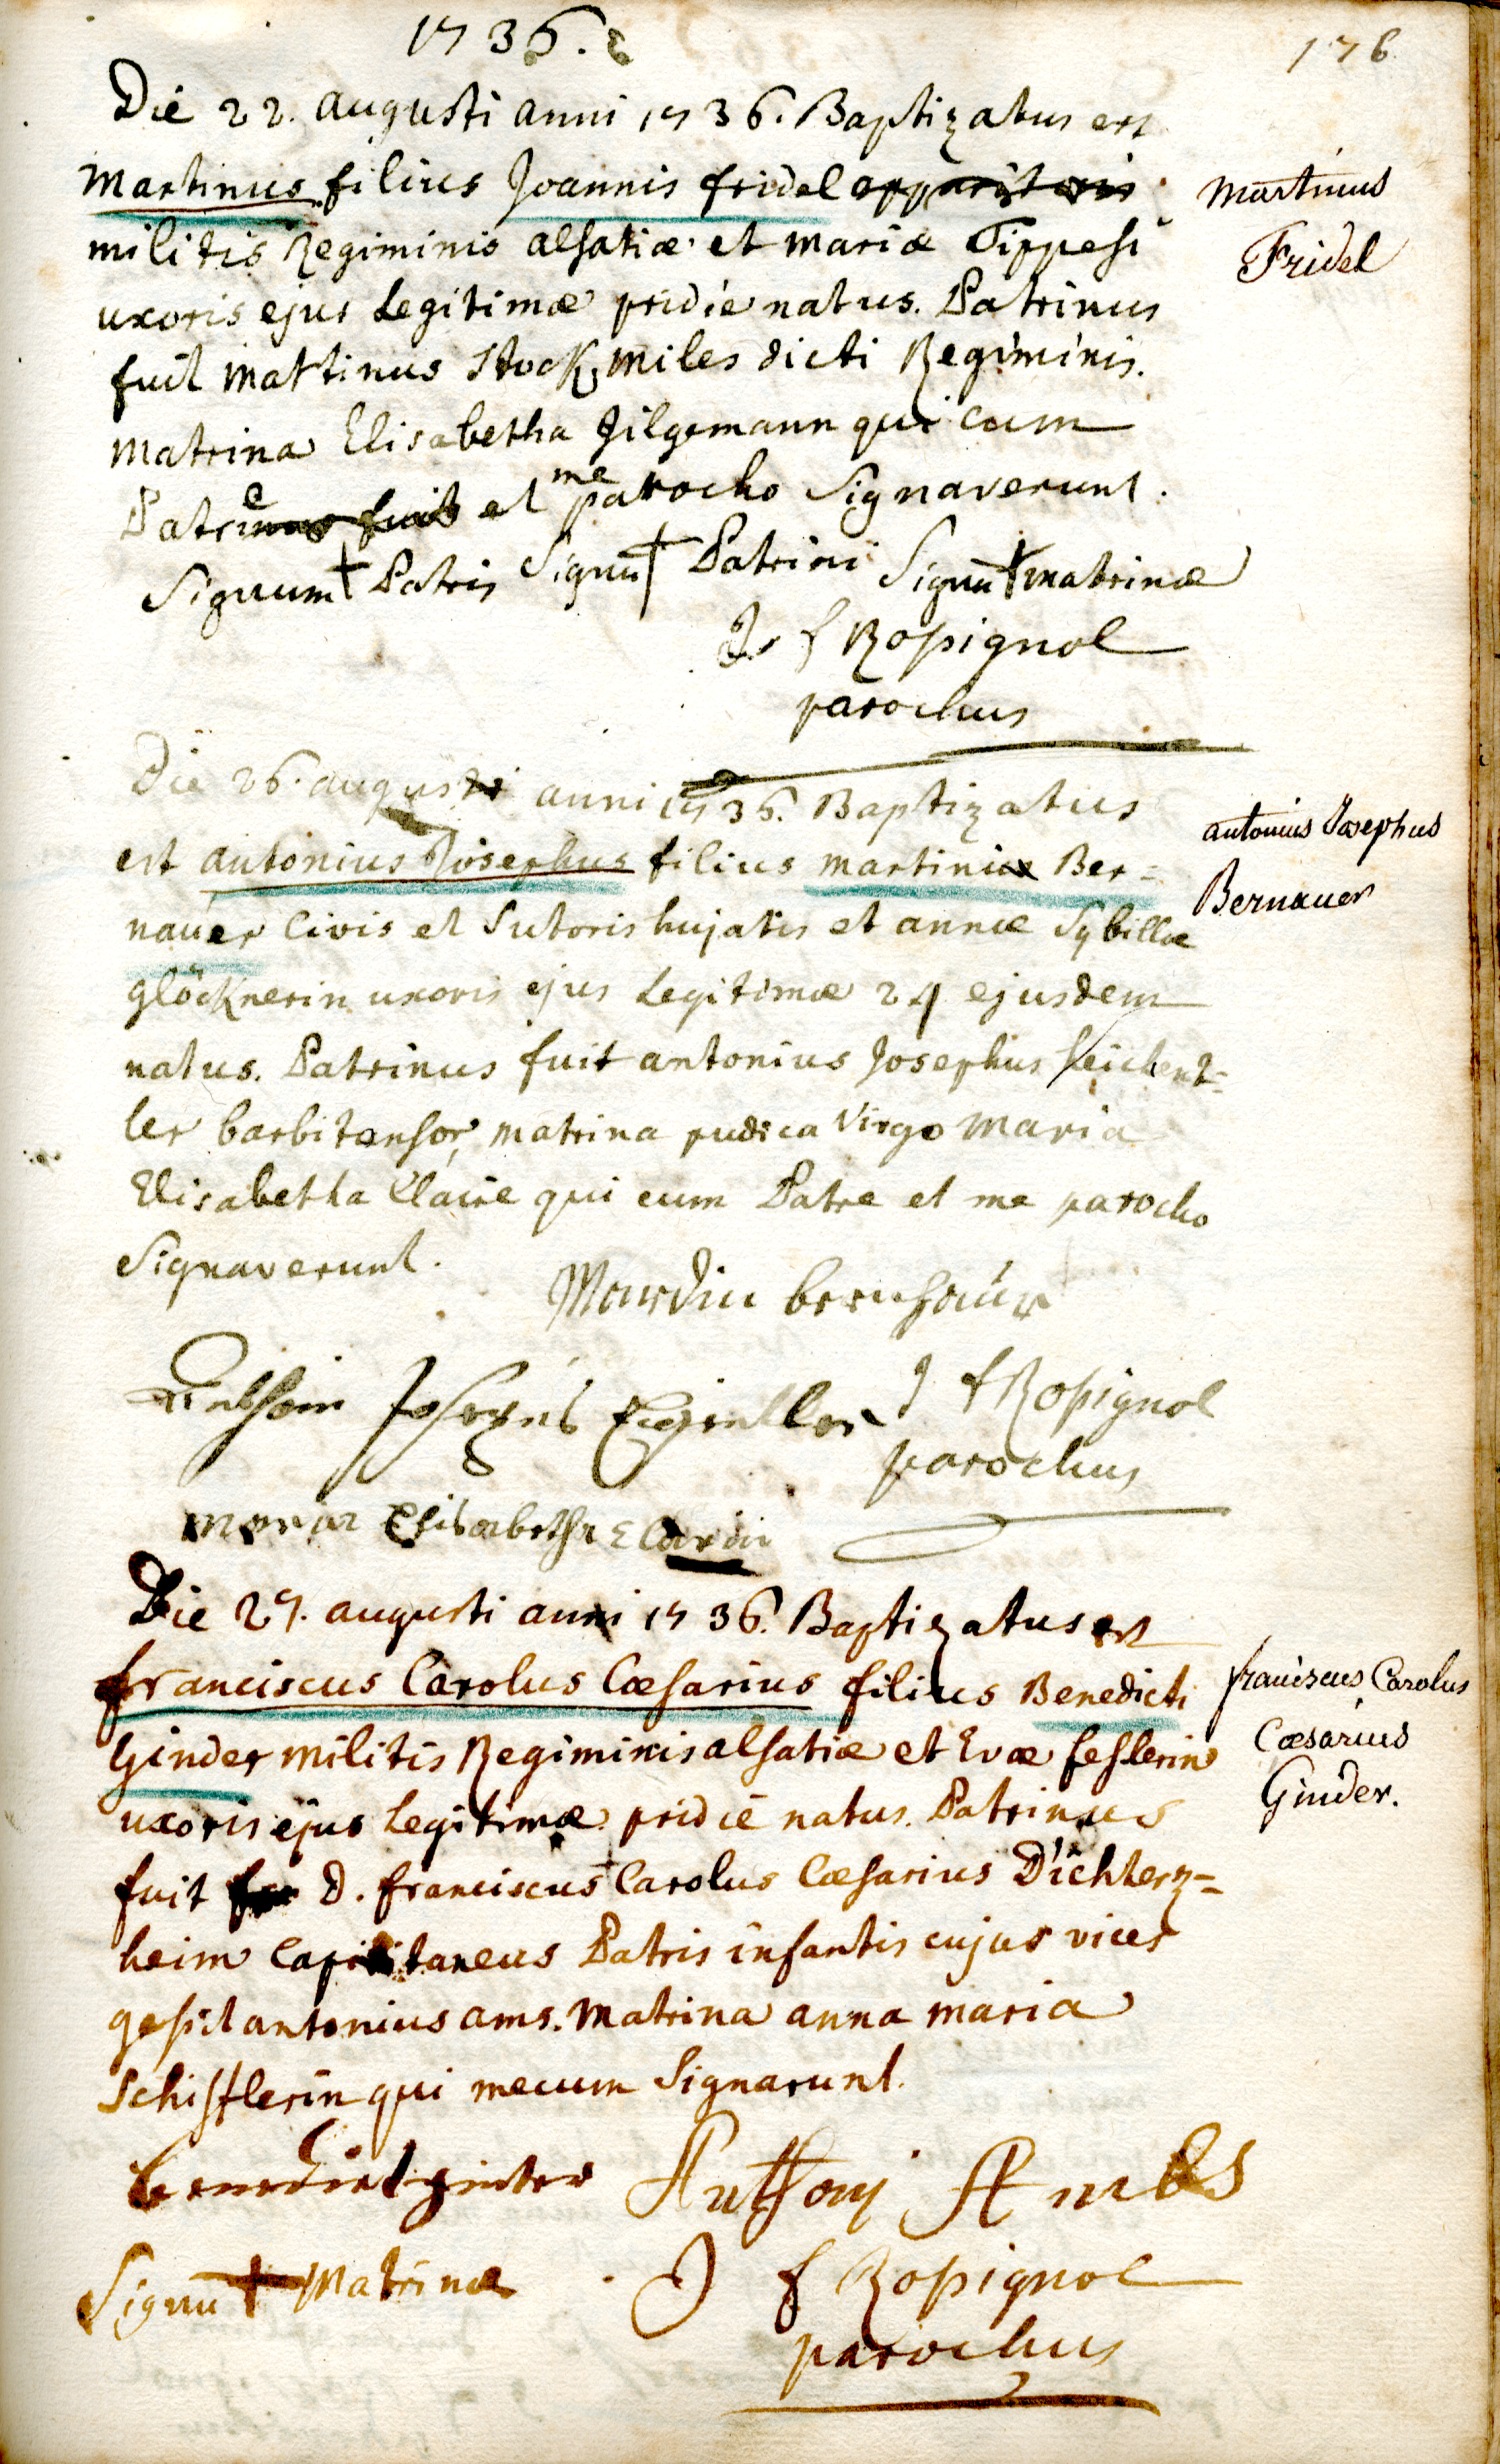 1736.
176
Die 22. augusti anni 1736. Baptizatus est
Martinus filius Joannis fridel apparitoris
militis Regiminis alsatiæ et mariæ Tippesi
uxoris ejus Legitimæ pridie natus. Patrinus
fuit Martinus Stock, miles dicti Regiminis.
Matrina Elisabetha Zilgemann qui cum
Patre et me parocho Signaverunt.
Signum + Patris Signu + Patrini Signu + matrinæ
J f Rossignol
parochus
Martinus
Fridel
Die 26. augusti anni 1736. Baptizatus
est antonius Josephus filius martini Ber=
nauer Civis et Sutoris hujatis et annæ Sybillæ
glöcknerin uxoris ejus Legitimæ 24 ejusdem
natus. Patrinus fuit antonius Josephus
ler barbitonsor, matrina pudica Virgo Maria
Elisabetha Claire qui cum Patre et me parocho
Signaverunt.
antonius Josephus
Bernauer
Mardin
J f Rossignol
parochus
Maria Elisabetha
Die 27. augusti anni 1736. Baptizatus est
franciscus Carolus Cæsarius filius Benedicti
Ginder militis Regiminis alsatiæ et Evæ feslerin
uxoris ejus Legitimæ pridie natus. Patrinus
fuit D. franciscus Carolus Cæsarius Dichterz=
heim Capitaneus Patris infantis cujus vices
gessit antonius ams. Matrina anna maria
Schistlerin qui mecum Signarunt.
franciscus Carolus
Cæsarius
Ginder.
benedict ginter Anthony Ambs
Signu + Matrinæ J f Rossignol
parochus